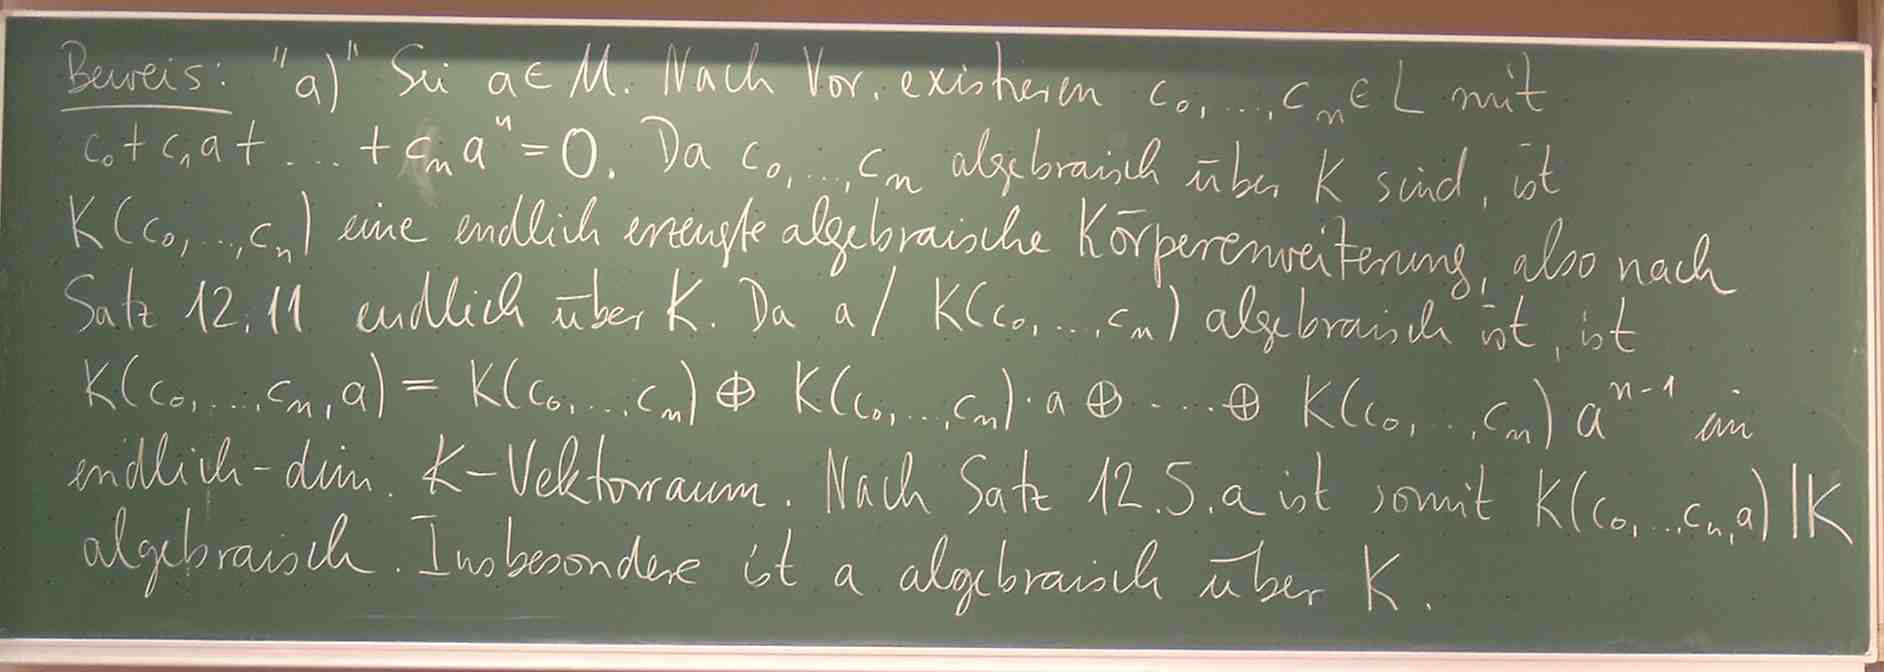 Beweis: "a)" Sei a ∈ M. Nach Vor. existieren c₀, ..., cₙ ∈ L mit
c₀ + c₁a + ... + cₙaⁿ = 0. Da c₀, ..., cₙ algebraisch über K sind, ist
K(c₀, ..., cₙ) eine endlich erzeugte algebraische Körpererweiterung, also nach
Satz 12.11 endlich über K. Da a / K(c₀, ..., cₙ) algebraisch ist, ist
K(c₀, ..., cₙ, a) = K(c₀, ..., cₙ) ⊕ K(c₀, ..., cₙ)·a ⊕ ... ⊕ K(c₀, ..., cₙ) aⁿ⁻¹ ein
endlich-dim. K-Vektorraum. Nach Satz 12.5.a ist somit K(c₀, ..., cₙ, a) | K
algebraisch. Insbesondere ist a algebraisch über K.